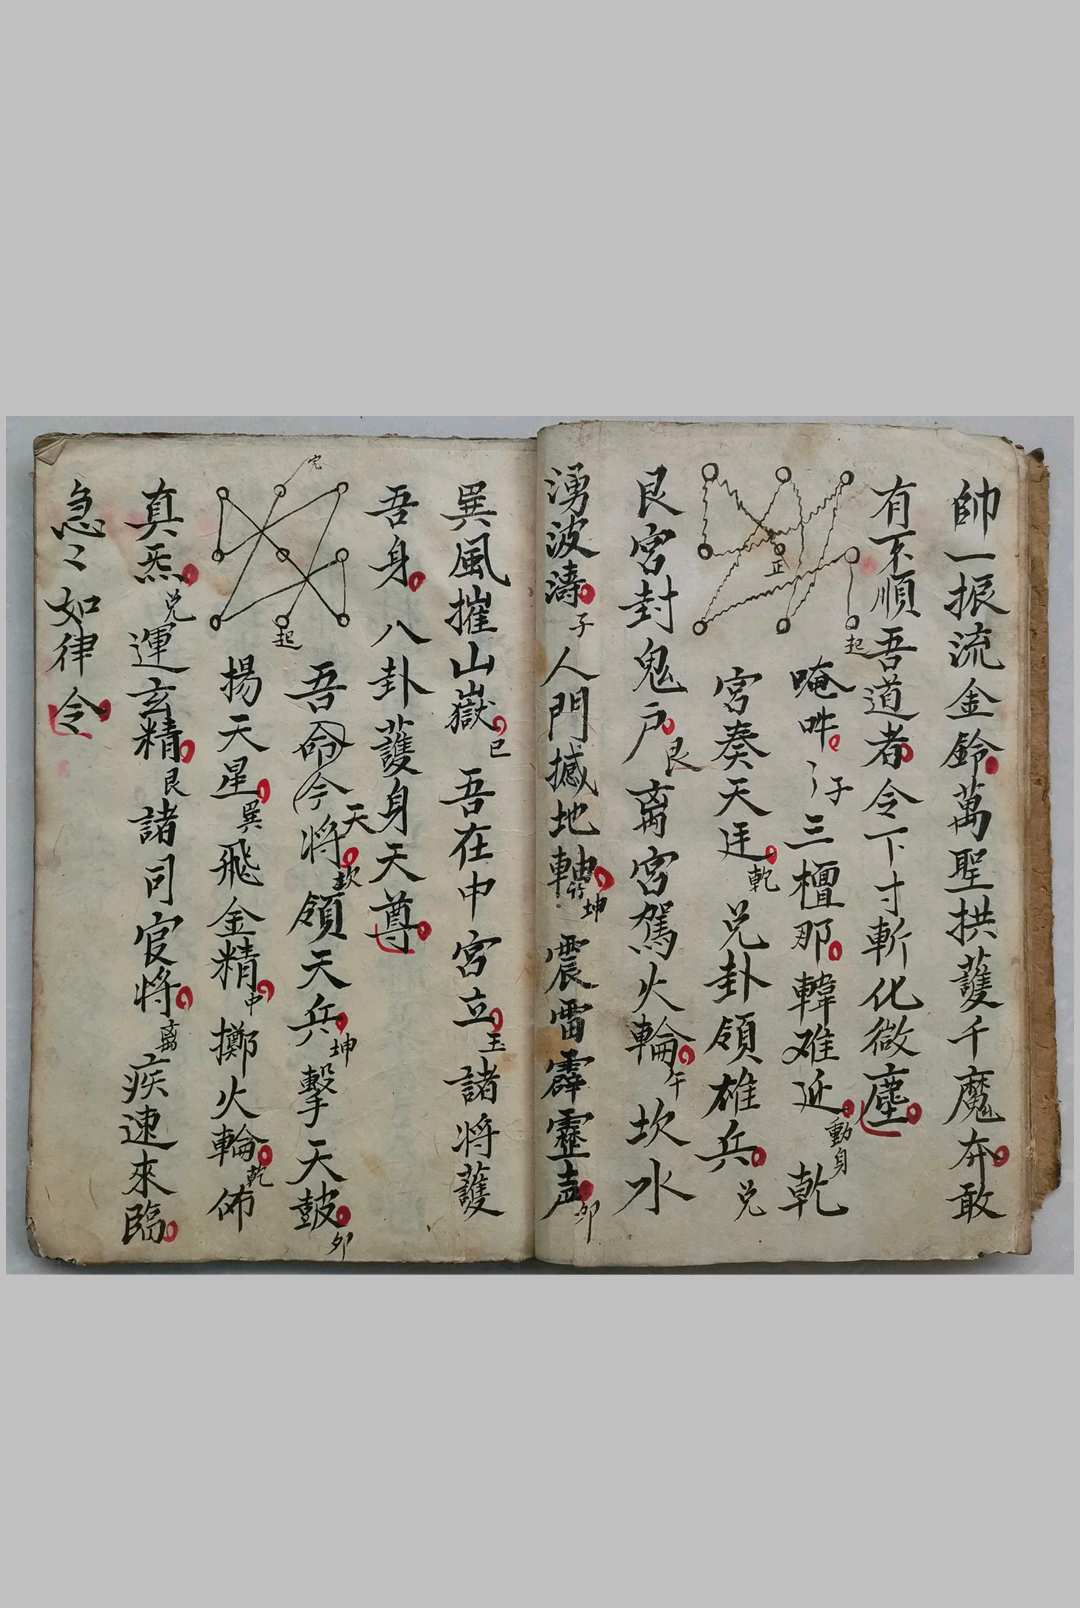 帥一振流金鈴萬聖拱護千魔奔敢
有不順吾道者令下寸斬化微塵
起
正
唵吽子三檀那韓难近動身乾
宮奏天廷乾兑卦領雄兵兑
艮宮封鬼户艮离宮駕火輪午坎水
湧波濤子人門撼地轉坤震雷霹靂声卯
巽風摧山嶽巳吾在中宮立玉諸将護
吾身八卦護身天尊
完
起
吾命令天将坎領天兵坤擊天鼓卯
揚天星巽飛金精中擲火輪乾佈
真炁兑運玄精艮諸司官将离疾速來臨
急〻如律令